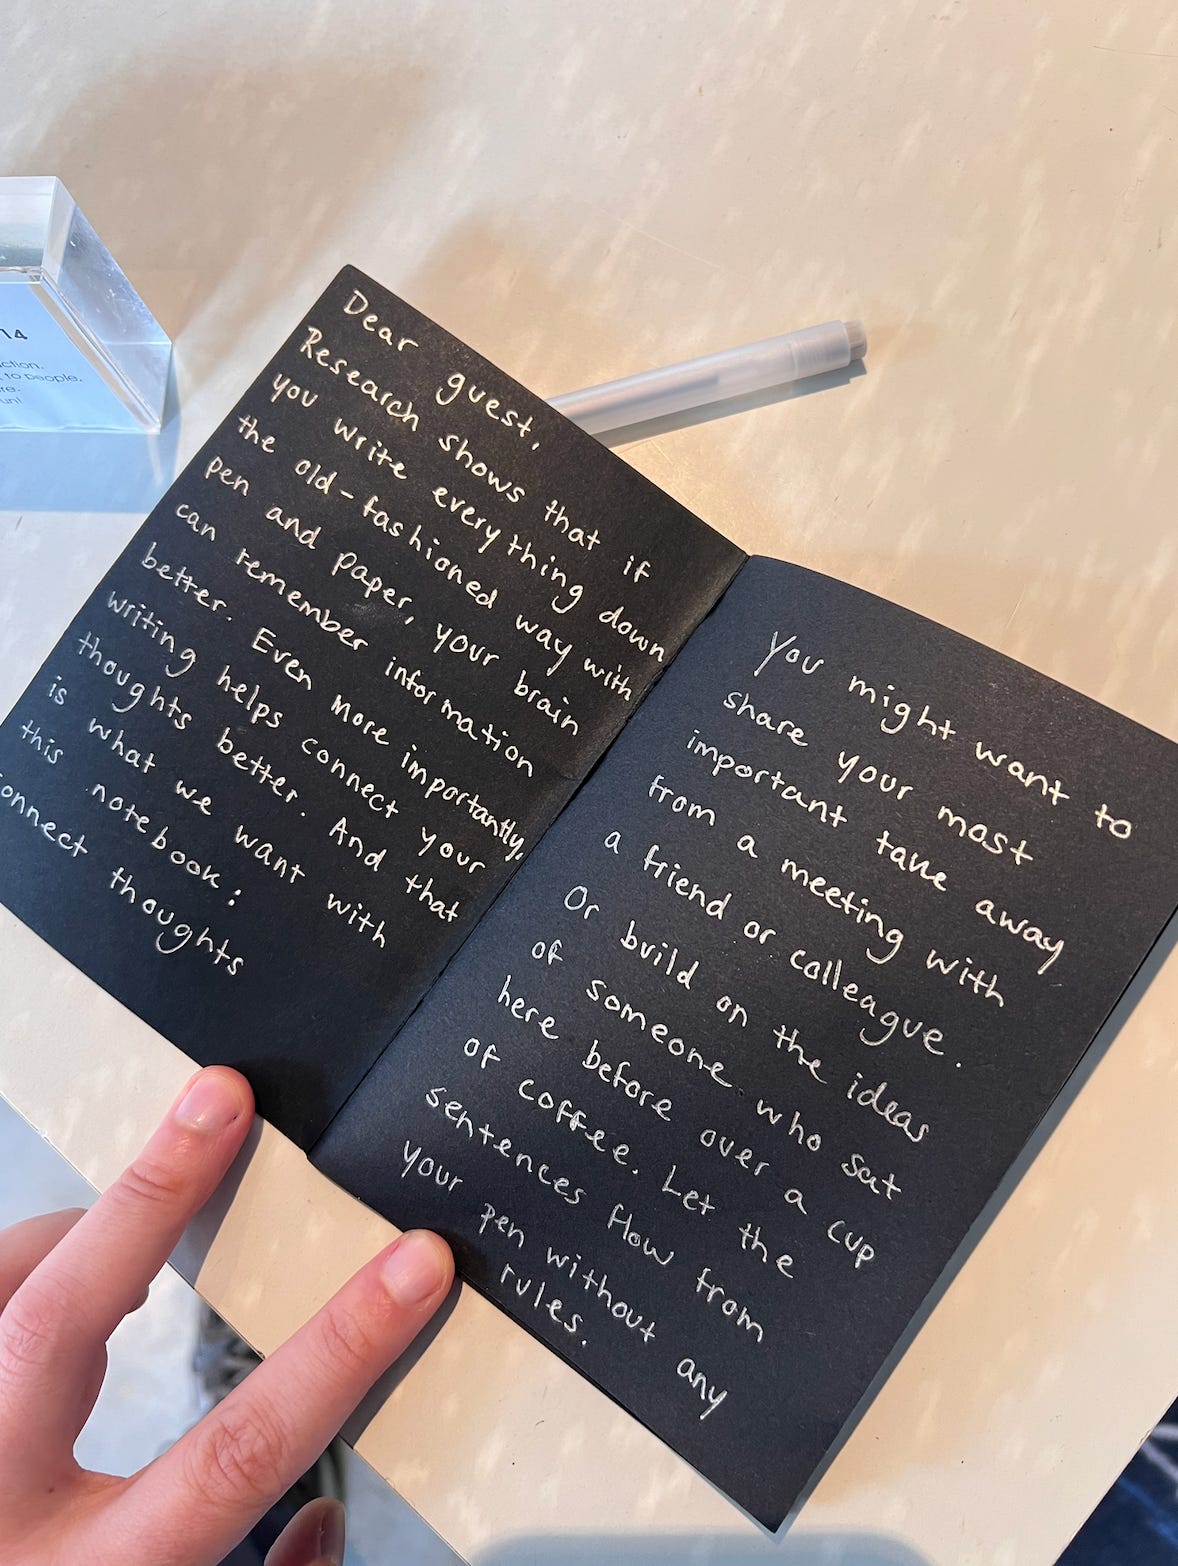 14
to people.
Dear guest,
Research shows that if
you write everything down
the old-fashioned way with
pen and paper, your brain
can remember information
better. Even more importantly,
writing helps connect your
thoughts better. And that
is what we want with
this notebook:
connect thoughts
You might want to
share your most
important take away
from a meeting with
a friend or colleague.
Or build on the ideas
of someone who sat
here before over a cup
of coffee. Let the
sentences flow from
your pen without any
rules.